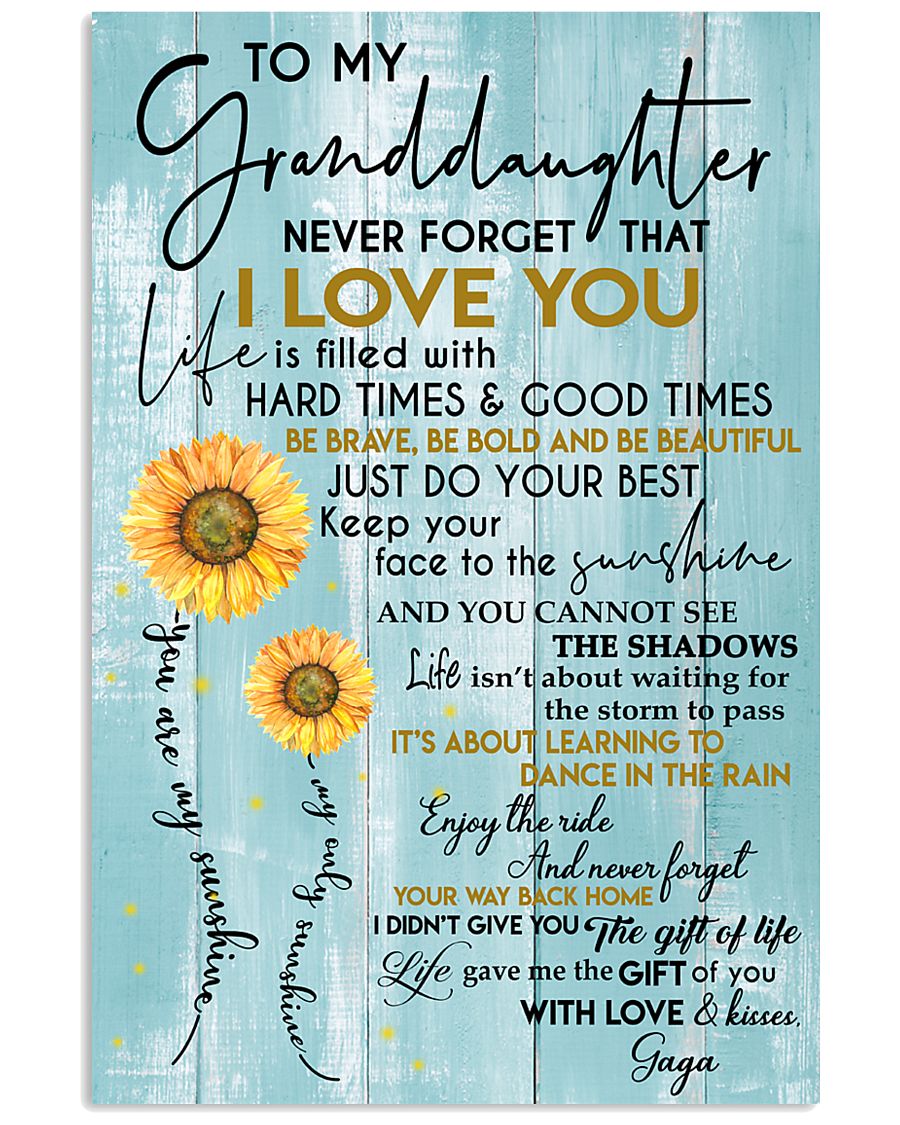 TO MY
Granddaughter
NEVER FORGET THAT
I LOVE YOU
Life is filled with
HARD TIMES & GOOD TIMES
BE BRAVE, BE BOLD AND BE BEAUTIFUL
JUST DO YOUR BEST
Keep your
face to the sunshine
AND YOU CANNOT SEE
THE SHADOWS
Life isn't about waiting for
the storm to pass
IT'S ABOUT LEARNING TO
DANCE IN THE RAIN
Enjoy the ride
And never forget
YOUR WAY BACK HOME
I DIDN'T GIVE YOU The gift of life
Life gave me the GIFT of you
WITH LOVE & kisses,
Gaga
you are my sunshine
my only sunshine